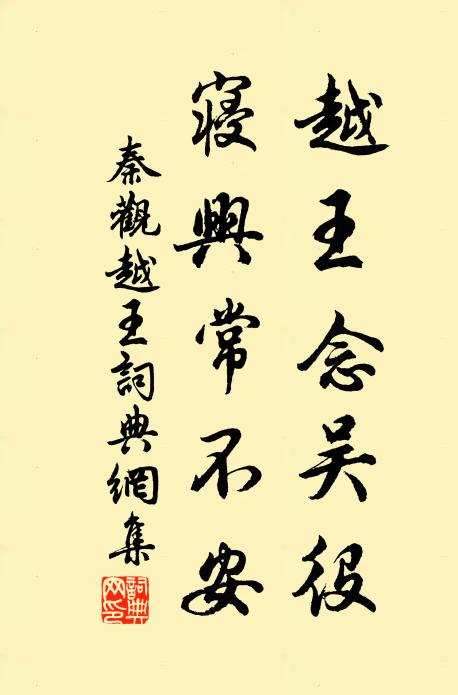 越王念吴役
寝興常不安
秦觀越王詞典網集
詞典网印